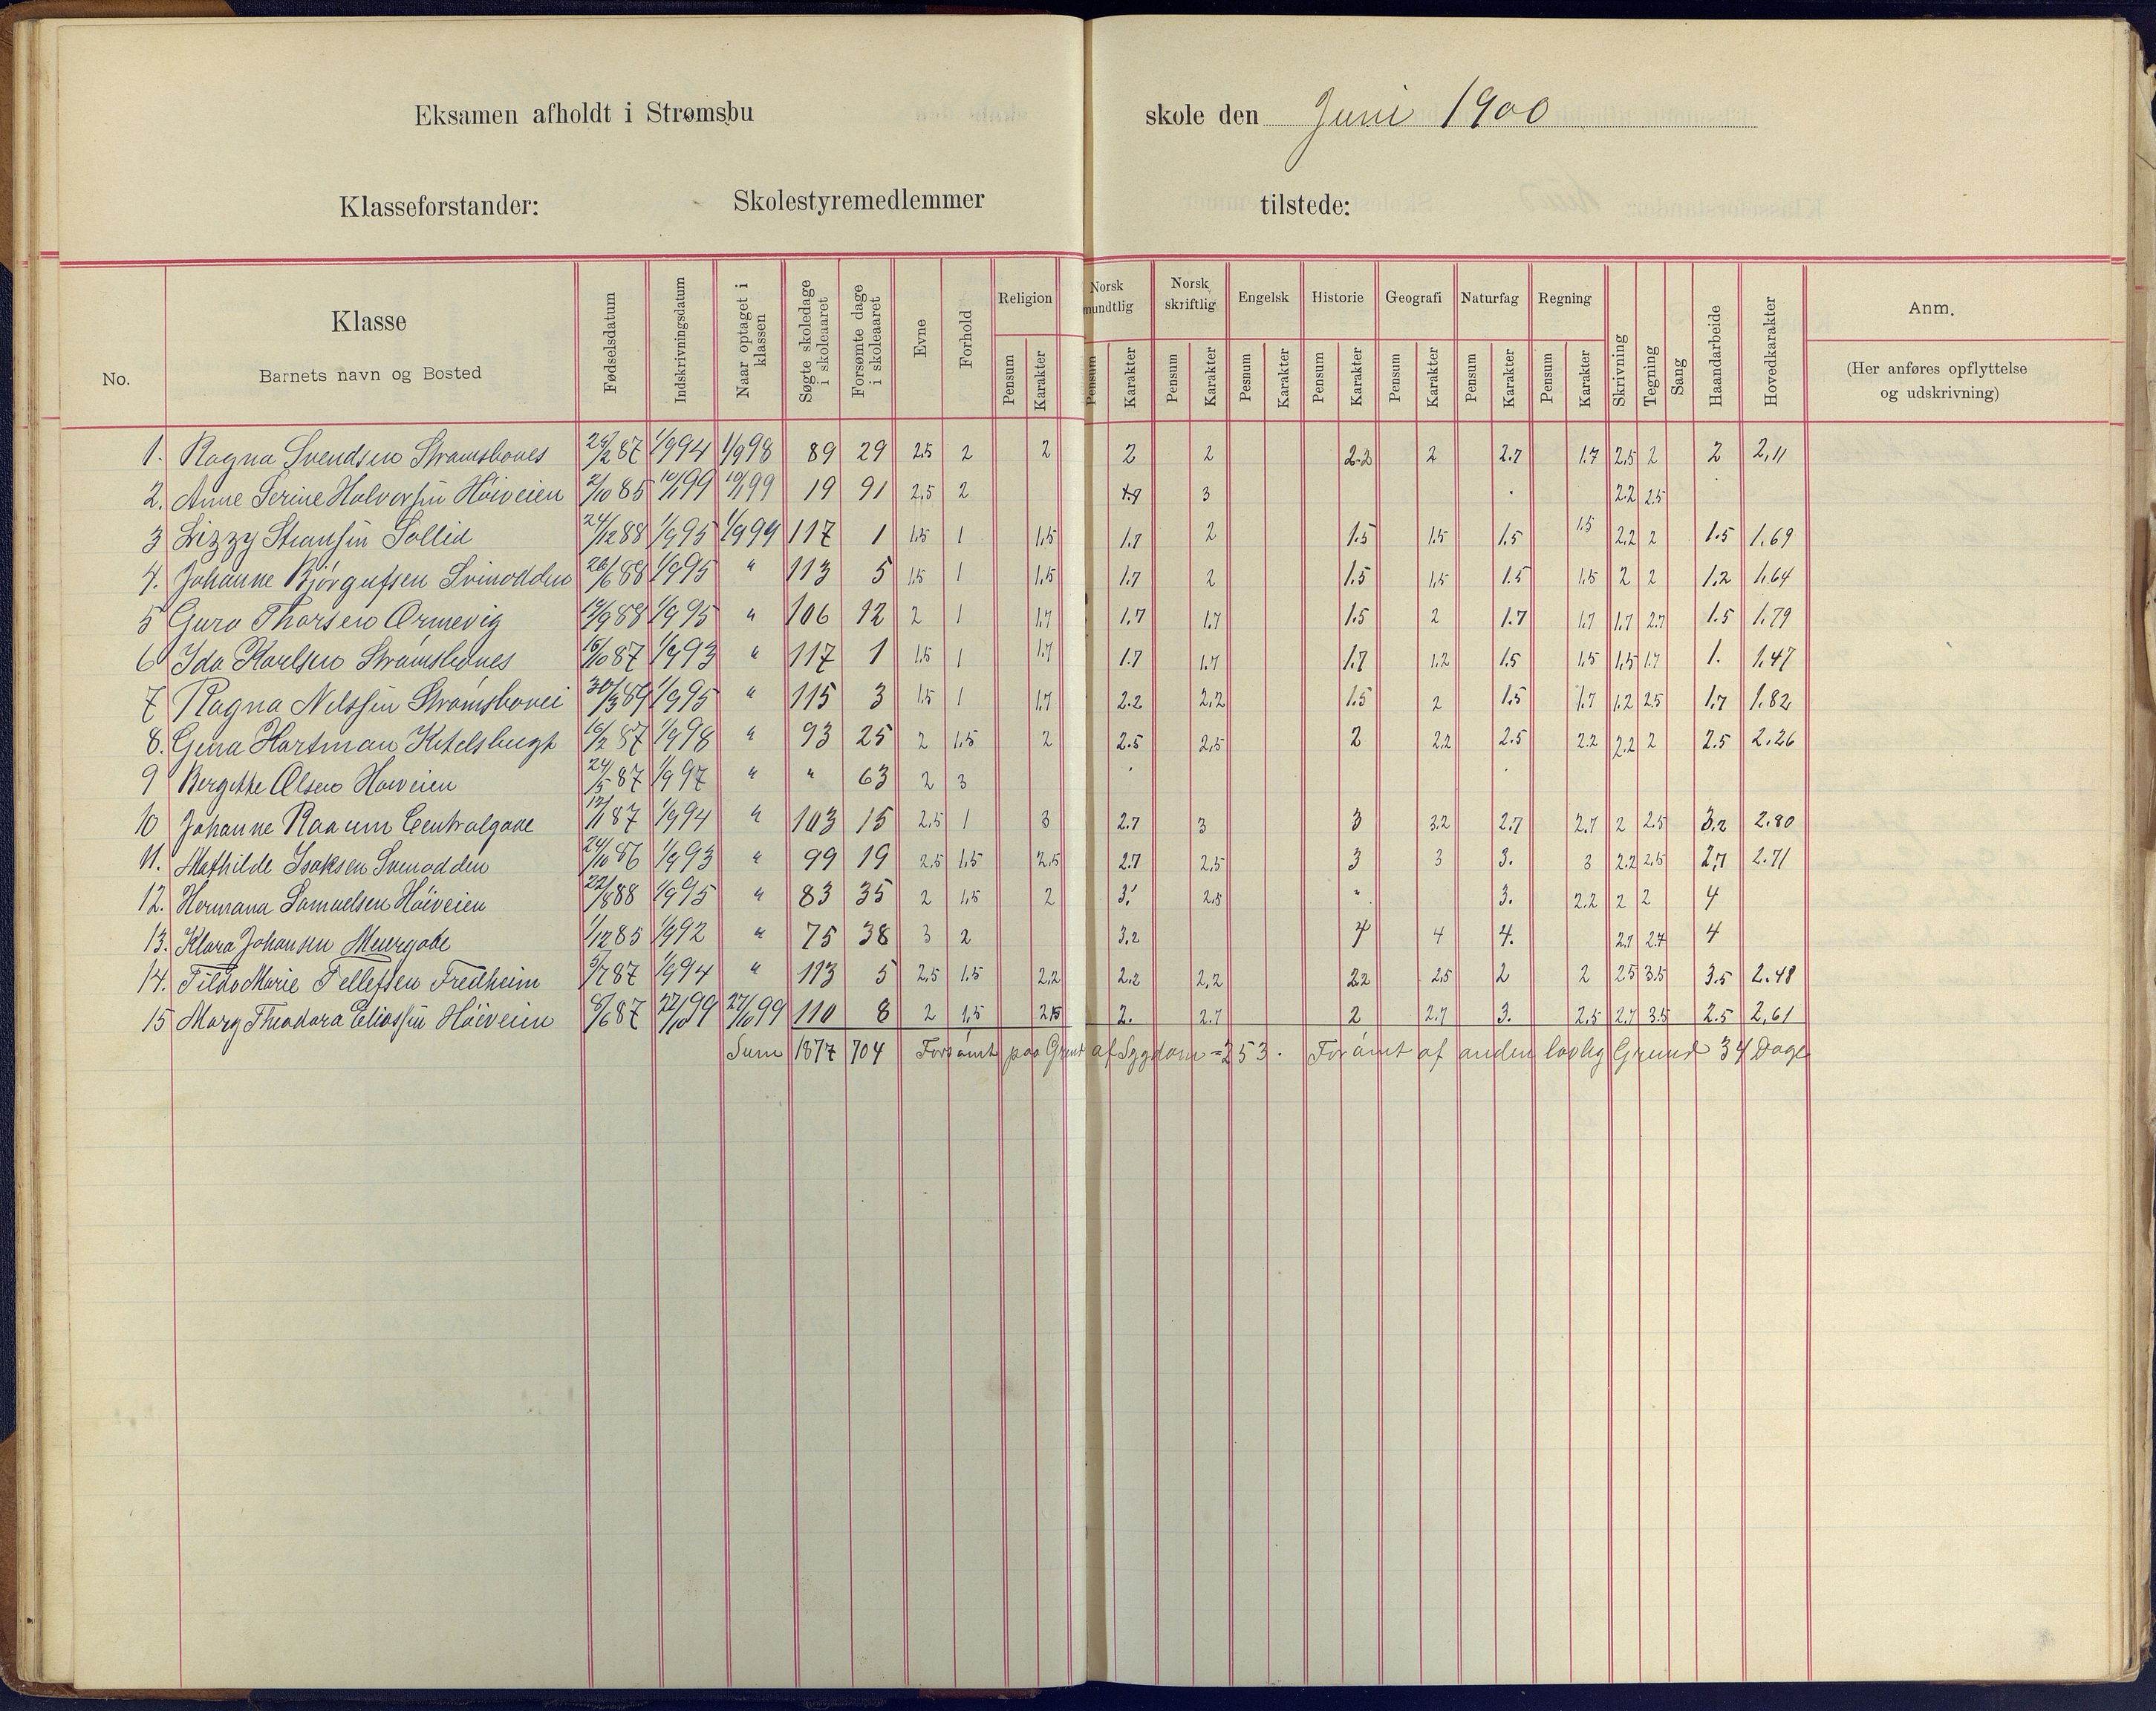 Eksamen afholdt i Strømsbu skole den Juni 1900
Klasseforstander: Skolestyremedlemmer tilstede:
No. Klasse Barnets navn og Bosted Fødselsdatum Indskrivningsdatum Naar optaget i klassen Søgte skoledage i skoleaaret Forsømte dage i skoleaaret Evne Forhold Religion Norsk mundtlig Norsk skriftlig Engelsk Historie Geografi Naturfag Regning Skrivning Tegning Sang Haandarbeide Hovedkarakter Anm. (Her anføres opflyttelse og udskrivning)
Pensum Karakter Pensum Karakter Pensum Karakter Pesnum Karakter Pensum Karakter Pensum Karakter Pensum Karakter Pensum Karakter
1. Ragna Svendsen Strømsbones 1/9 94 1/9 98 89 29 2.5 2 2 2 2 2.2 2 2.7 1.7 2.5 2 2 2,11
2. Anne Serine Halvorsen Høiveien 2/10 85 19 91 2,5 2 3 2.2 2.5
3 Lizzy Sollid 24/12 88 1/9 95 1/9 99 117 1 1.5 1 1.5 1.7 2 1.5 1.5 1.5 1.5 2.2 2 1.5 1.69
4. Johanne Bjørgufsen Svinodden 26/6 88 1/9 95 " 113 5 1.5 1 1.5 1.7 2 1.5 1.5 1.5 1.5 2 2 1.2 1.64
5 Guro Thorsen Ørmevig 1/9 95 " 106 12 2 1 1.7 1.7 1.7 1.5 2 1.7 1.7 1.7 2.7 1.5 1.79
6 Ida Karlsen Strømsbones 16/10 87 1/9 93 " 117 1 1.5 1 1.7 1.7 1.7 1.7 1.2 1.5 1.5 1.5 1.7 1. 1.47
7 Ragna Nilssen Strømsbovei 30/3 89 1/9 95 " 115 3 1.5 1 1.7 2.2 2,2 1.5 2 1.5 1.7 1.2 2.5 1.7 1.82
8. Gena Hartman Kitelsbugt 1/9 98 " 93 25 2 1.5 2 2.5 2.5 2 2.2 2.5 2.2 2.2 2 2.5 2.26
9 Bergitte Olsen Høiveien 24/5 87 1/9 97 " " 63 2 3
10 Johanne Raaum Centralgade 12/1 87 1/9 94 " 103 15 2.5 1 3 2.7 3 3 3.2 2.7 2.7 2 2.5 3.2 2.80
11. Mathilde Isaksen Svenodden 24/10 86 1/9 93 " 99 19 2.5 1.5 2.5 2.7 2.5 3 3 3. 3 2.2 2.5 2,7 2.71
12. Hermana Samuelsen Høiveien 22/8 88 1/9 95 " 83 35 2 1.5 2 3. 2.5 " 3. 2.2 2 2 4
13. Klara Johansen Muurgade 1/12 85 1/9 92 " 75 38 3 2 3,2 4 4 4. 2.7 2.7 4
14. Tilda Marie Tellefsen Fredheim 5/7 87 1/9 94 " 113 5 2.5 1.5 2,2 2.2 2,2 2.2 2.5 2 2 2.5 3.5 3.5 2.48
15 Marg Theodora Eliassen Høiveien 8/6 87 27/10 99 27/10 99 110 8 2 1,5 2.5 2. 2.7 2 2.7 3. 2.5 2.7 3.5 2.5 2,61
Sum 1877 704 Forsømt paa Grund af Sygdom = 253. Forsømt af anden lovlig Grund 34 Dage